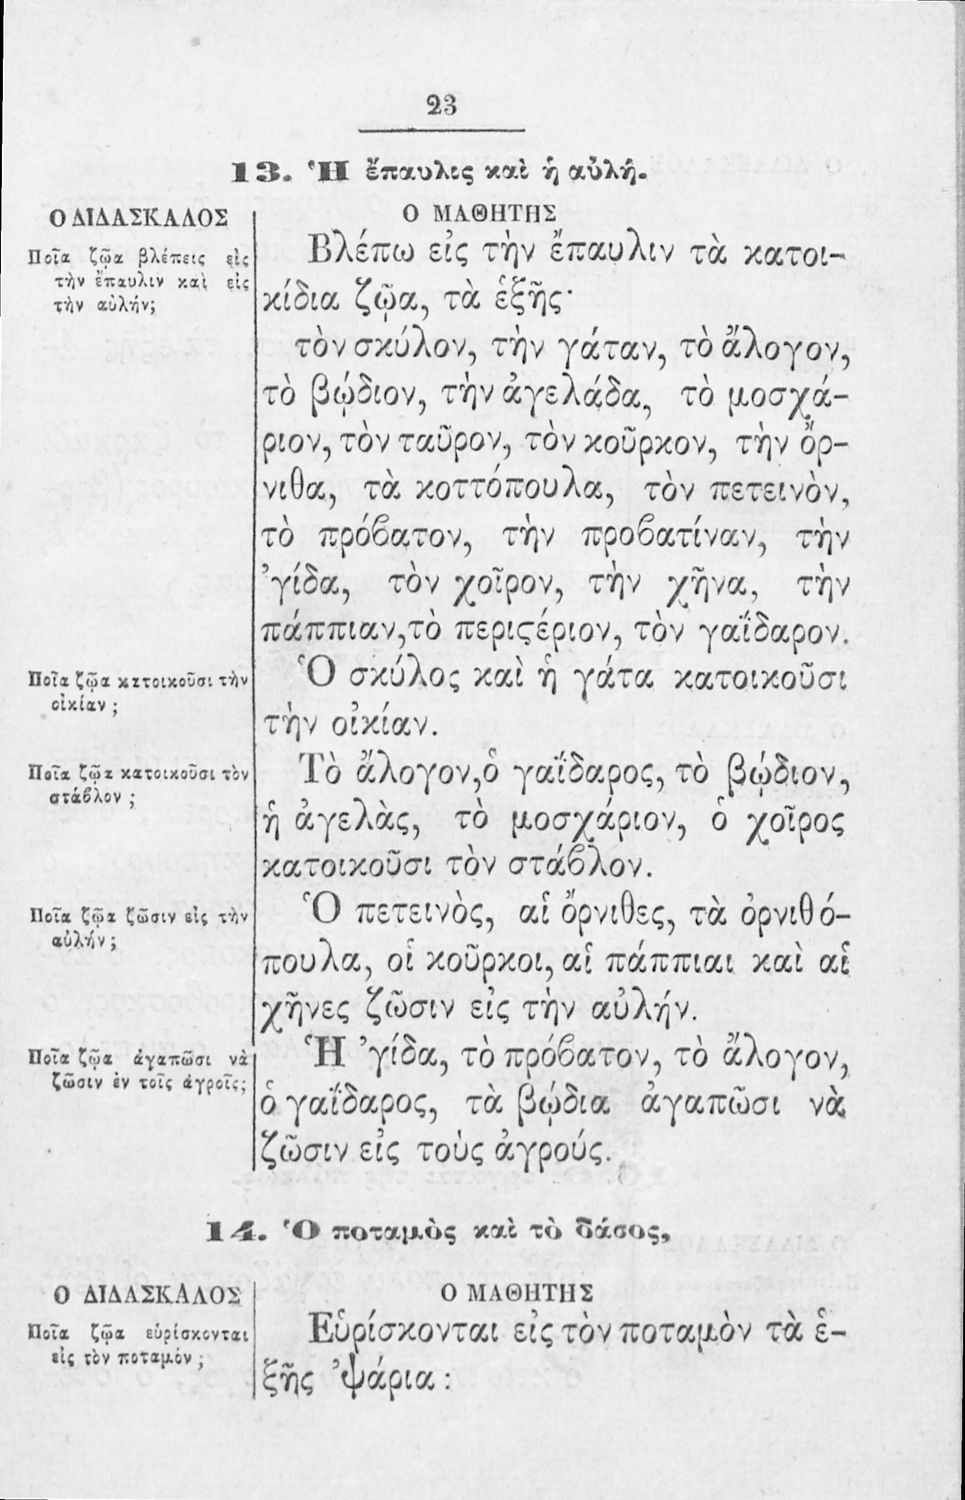 23
13. Ἡ ἔπαυλις καὶ ἡ αὐλή.
Ο ΔΙΔΑΣΚΑΛΟΣ
Ποῖα ζῷα βλέπεις εἰς
τὴν ἔπαυλιν καὶ εἰς
τὴν αὐλήν;
Ο ΜΑΘΗΤΗΣ
Βλέπω εἰς τὴν ἔπαυλιν τὰ κατοι-
κίδια ζῷα, τὰ ἑξῆς·
τὸν σκύλον, τὴν γάταν, τὸ ἄλογον,
τὸ βῴδιον, τὴν ἀγελάδα, τὸ μοσχά-
ριον, τὸν ταῦρον, τὸν κοῦρκον, τὴν ὄρ-
νιθα, τὰ κοττόπουλα, τὸν πετεινὸν,
τὸ πρόβατον, τὴν προβατίναν, τὴν
'γίδα, τὸν χοῖρον, τὴν χῆνα, τὴν
πάππιαν, τὸ περιϛέριον, τὸν γαΐδαρον.
Ποῖα ζῷα κατοικοῦσι τὴν
οἰκίαν;
Ὁ σκύλος καὶ ἡ γάτα κατοικοῦσι
τὴν οἰκίαν.
Ποῖα ζῷα κατοικοῦσι τὸν
στάβλον;
Τὸ ἄλογον, ὁ γαΐδαρος, τὸ βῴδιον,
ἡ ἀγελὰς, τὸ μοσχάριον, ὁ χοῖρος
κατοικοῦσι τὸν στάβλον.
Ποῖα ζῷα ζῶσιν εἰς τὴν
αὐλήν;
Ὁ πετεινὸς, αἱ ὄρνιθες, τὰ ὀρνιθό-
πουλα, οἱ κοῦρκοι, αἱ πάππιαι καὶ αἱ
χῆνες ζῶσιν εἰς τὴν αὐλήν.
Ποῖα ζῷα ἀγαπῶσι νὰ
ζῶσιν ἐν τοῖς ἀγροῖς;
Ἡ 'γίδα, τὸ πρόβατον, τὸ ἄλογον,
ὁ γαΐδαρος, τὰ βῴδια ἀγαπῶσι νὰ
ζῶσιν εἰς τοὺς ἀγρούς.
14. Ὁ ποταμὸς καὶ τὸ δάσος,
Ο ΔΙΔΑΣΚΑΛΟΣ
Ποῖα ζῷα εὑρίσκονται
εἰς τὸν ποταμόν;
Ο ΜΑΘΗΤΗΣ
Εὑρίσκονται εἰς τὸν ποταμὸν τὰ ἑ-
ξῆς 'ψάρια: